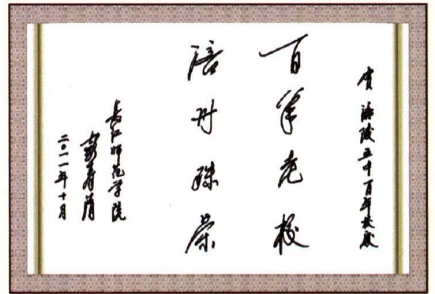 贺涪陵五中百年校庆
百年老校
涪州殊荣
长江师范学院
二〇一一年十月